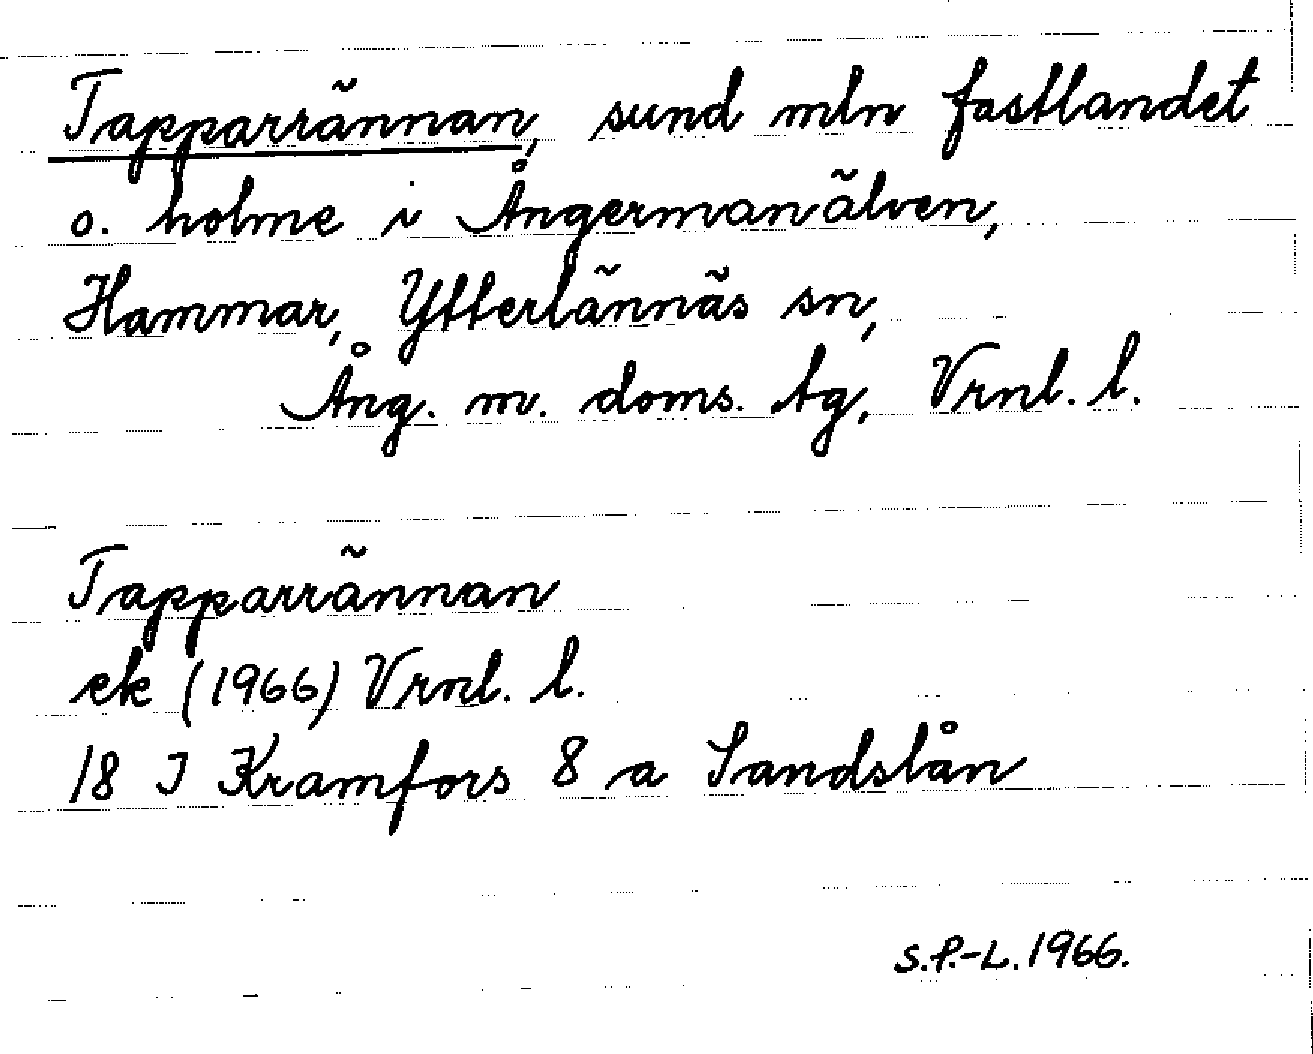 Tapparrännan, sund mln fastlandet
o. holme i Ångermanälven,
Hammar, Ytterlännäs sn,
Ång. m. doms. tg, Vrnl. l.
Tapparrännan
ek (1966) Vrnl. l.
18 I Kramfors 8 a Sandslån
S.P.-L. 1966.